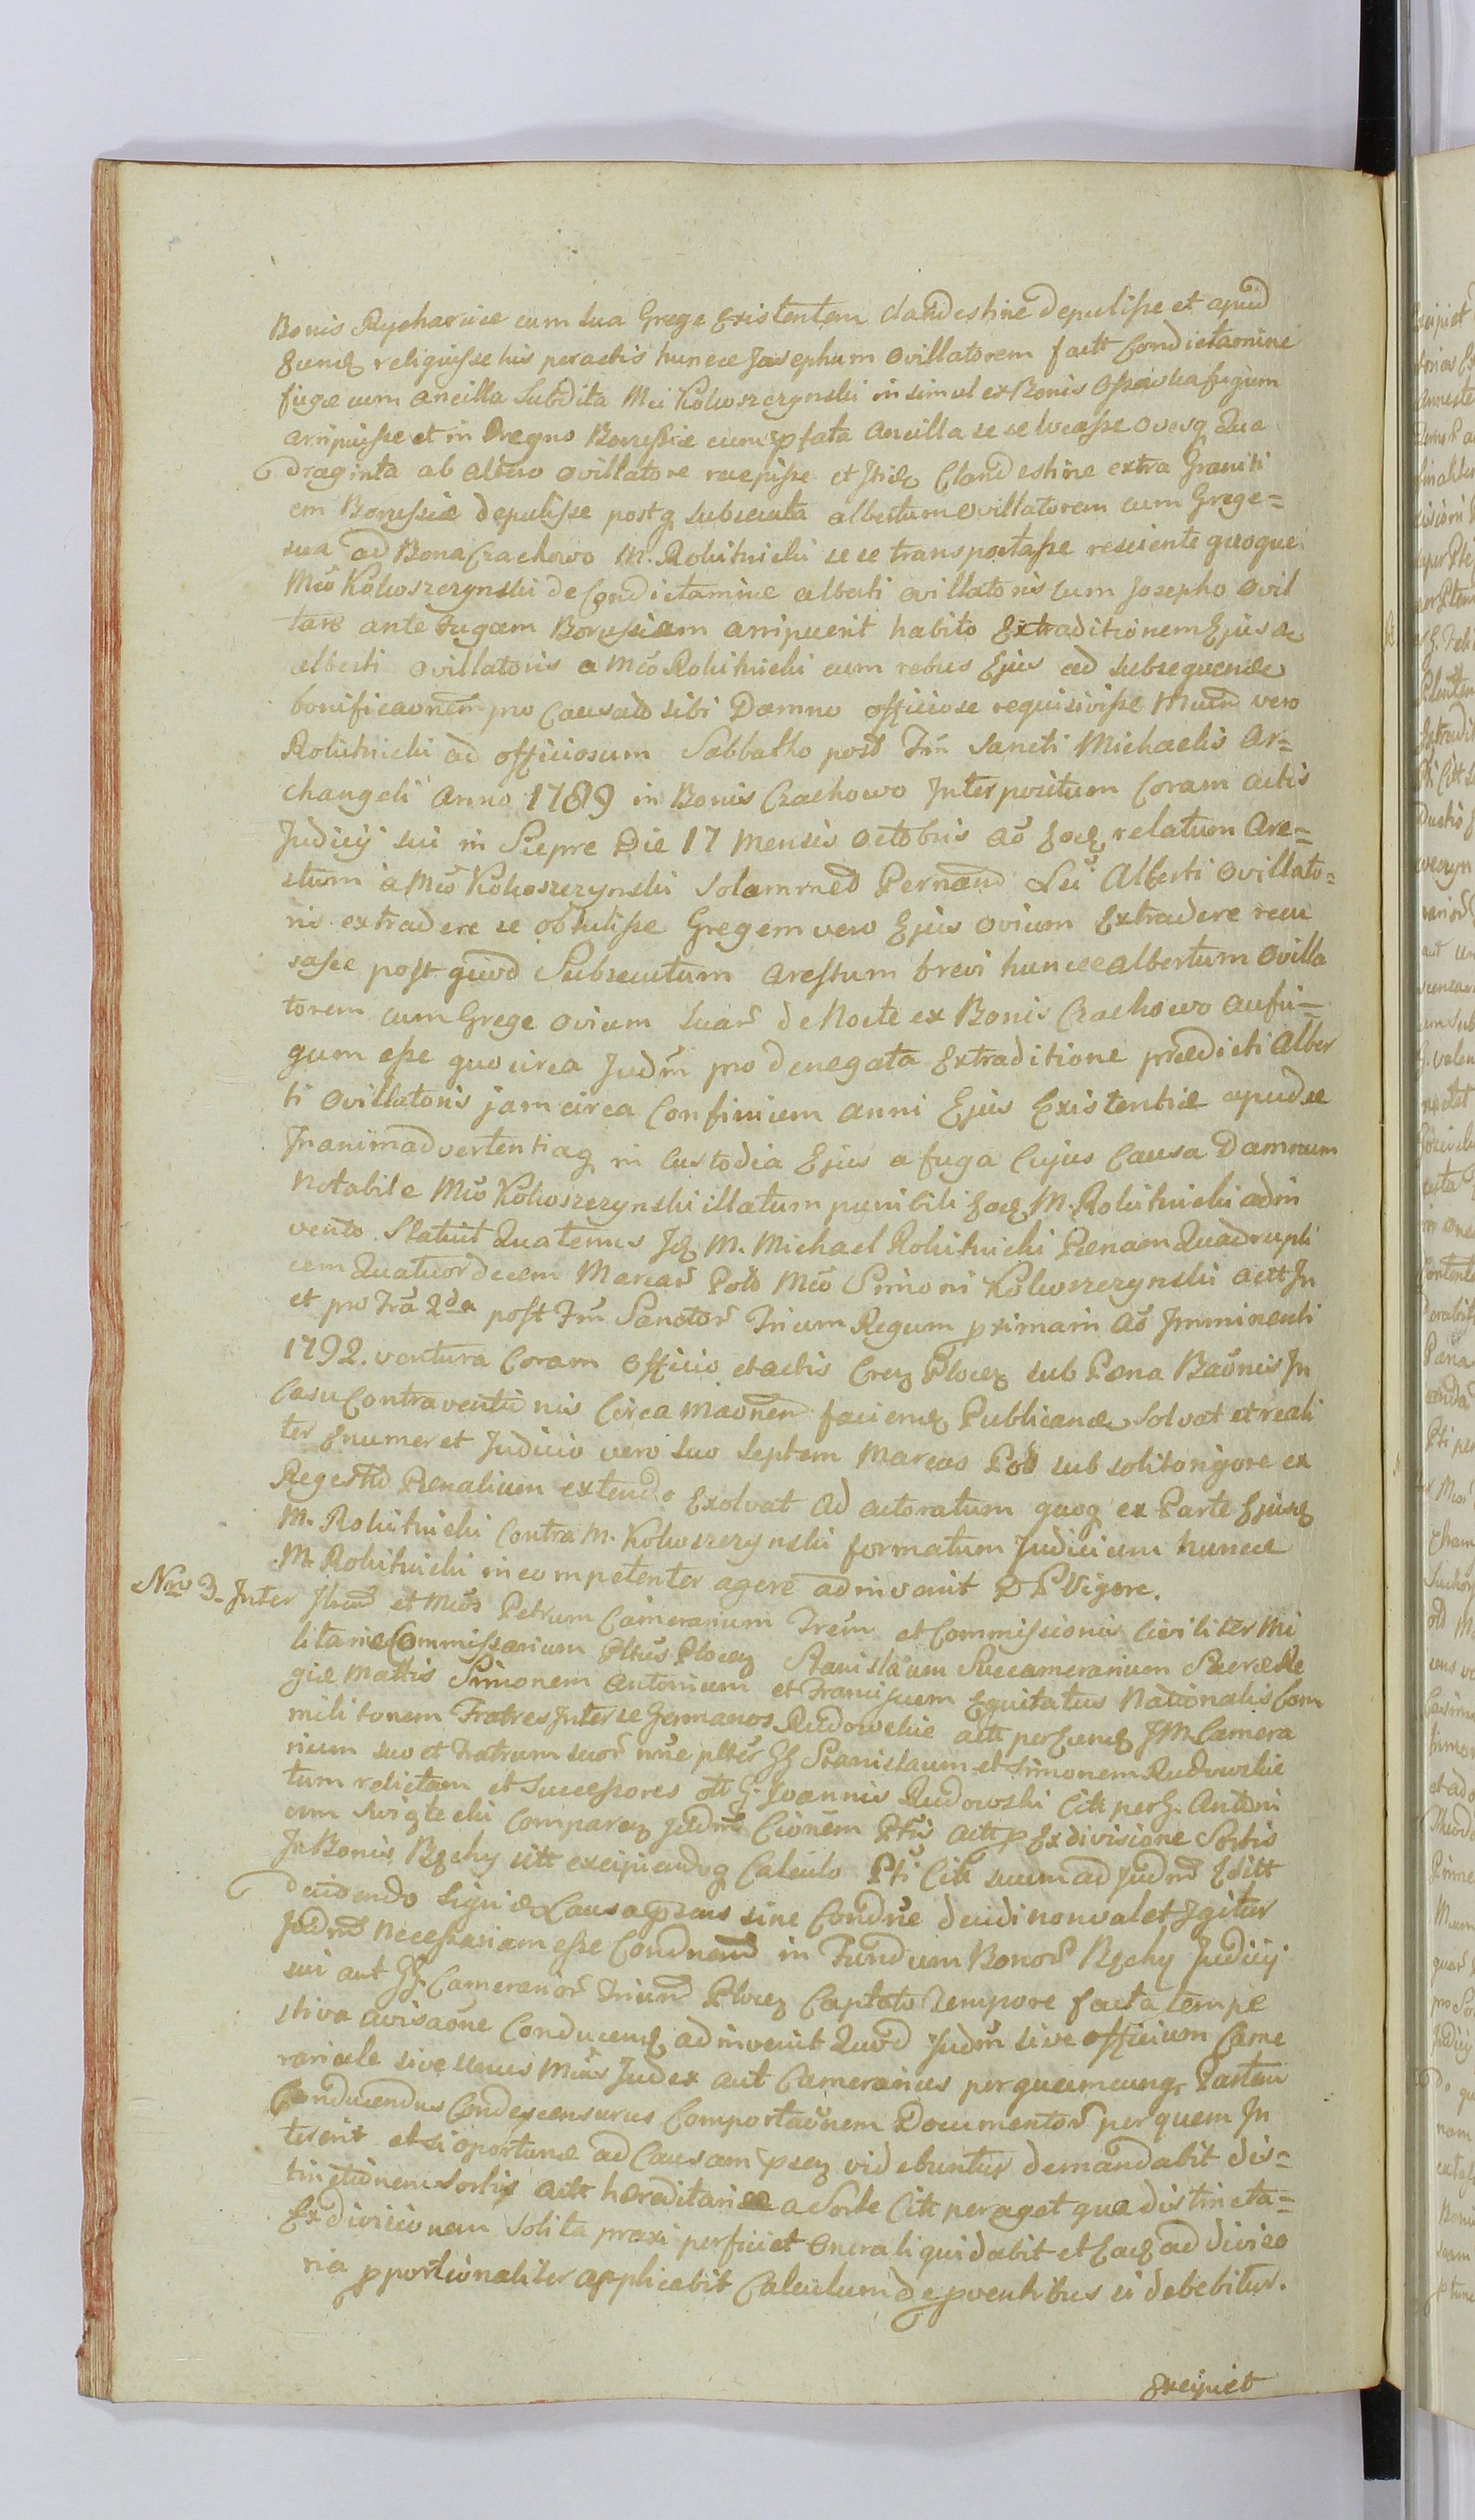 Bonis Rycharcice cum sua Grege Existentem clandestine depulisse et apud
Eundē reliquisse his peractis huncce Josephum ovillatorem factt Condictamine
fugæ cum ancilla Subdita Mci Kokoszczynski insimul ex Bonis fugam
arripuisse et in Regno Borussiæ cum pfata Ancilla se se locasse ovesq Qua
draginta ab altero ovillatore recepisse et Clandestine extra Graniti
em Borussiæ depulisse postq subsecuta albertum ovillatorem cum Grege=
sua ad Bona Crachowo M. Rokitnicki se se transportasse resciente quoque
Mcō Kokoszczynski de Condictamine alberti ovillatoris cum Josepho ovil
tare ante fugam Borussiam arripuerit habito Extraditionem Ejus de
alberti ovillatoris a Mcō Rokitnicki cum rebus Ejus ad subsequende
bonificaōnem pro Causato sibi Damno officiose requisivisse Mcum vero
Rokitnicki ad officiosum Sabbatho post Fm̄ Sancti Michaelis Ar=
changeli Anno 1789 in Bonis Crachowo Interpositum Coram actis
Judicij sui in Sierpc Die 17 Mensis Octobris aō Eodē relatum Are=
stum a Mcō Kokoszczynski solammed Pernam̄ Lci Alberti Ovillato=
ris extradere se obtulisse Gregem vero Ejus ovium Extradere recu
sasse post quod Subsecutum arestum brevi huncce albertum ovilla
torem cum Grege ovium suar̄ de Nocte ex Bonis Crachowo aufu=
gum esse quocirca Judm̄ pro denegata Extraditione prædicti Alber
ti Ovillatoris jam circa Confinium anni Ejus Existentiæ apud se
Inanimadvertentiaq in Custodia Ejus a fuga Cujus Causa Damnum
Notabile Mcō Kokoszczynski illatum punibili Eodē M. Rokitnicki adin
vento. Statuit Quatenus Idē M. Michael Rokitnicki Pænam Quadrupli
cem Quatuordecem Marcar̄ Pold Mcō Simoni Kokoszczynski actt In
et pro Trā 2da post Fm̄ Sanctor̄ Trium Regum primam Aō Imminenti
1792. ventura Coram Officio et actis Crēz Płocēz sub Pæna Baōnis In
Casu Contraventionis Circa Maōnem faciendē Publicandæ solvat et reali
ter Enumeret Judicio vero suo Septem Marcas Pold sub solito rigore ex
Regestro Pænalium extendo Exolvat ad actoratum quoq ex Parte Ejusdē
M. Rokitnicki Contra M. Kokoszczynski formatum Judicium huncce
M. Rokitnicki incompetenter agere adinvenit D P Vigore.
Nro 3. Inter Illrem et Mcōs Petrum Camerarium Trēm et Commissionis Civiliter Mi
litaris Commissarium Pltūs Płocēz Stanislaum Succamerarium Sacræ Re
giæ Mattis Simonem Antonium et Franciscum Equitatus Nationalis Com
militonem Fratres Inter se Germanos Rudowskie actt per Eundē JM. Camera
rium suo et Fratrum suor̄ nn̄e pltēr GG Stanislaum et Simonem Rudowskie
tum relictam et Successores olt G. Joannis Rudowski Citt per G. Antoni
um Swigtecki Comparēz Judm̄ Cionēm Ptīs actt p Exdivisione Sortis
In Bonis Rzchy sitt excipiendoq Calculo Ptī Citt suum ad Judm̄ Editt
decidendo Siquidē Causa pens sine Condne decidi nonvalet Igitur
Judm̄ Necessariam esse Condnem̄ in Fundum Bonor̄ Rzchy Judicij
sui aut GG Camerarior̄ Trium̄ Płocēz Captato Tempore facta tempe
stiva avisaōne Conducendē adinvenit Quod Judm̄ sive officium Came
rariale sive unus Mcūs Judex aut Camerarius per quamcunq Partem
Conducendus Condescensurus Comportaōnem Documentor̄ per quem In
tererit et si oportune ad Causam psēz videbuntur demandabit dis=
tinctionem Sortis actt hæreditariæ a Sorte Citt peraget qua distincta=
Exdivisionem solita praxi perficiet Onera liquidabit et Eadē ad diviso
ria pportionaliter applicabit Calculum de pventibus si debebitur.
Excipiet